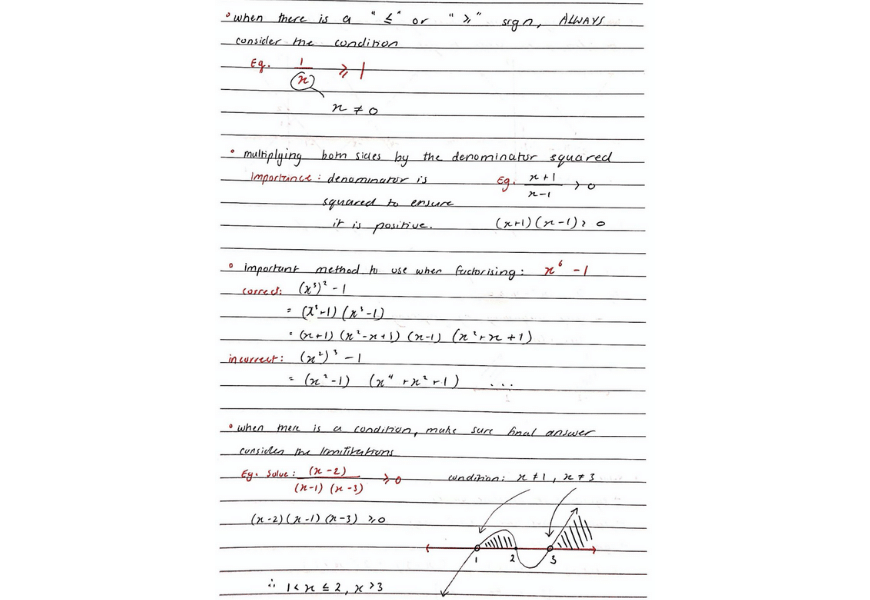 • when there is a "≤" or "≥" sign, ALWAYS
consider the condition
Eg. 1/x ≥ 1
x ≠ 0
• multiplying both sides by the denominator squared
Importance: denominator is Eg. x+1/x-1 > 0
squared to ensure
it is positive. (x+1)(x-1) > 0
• important method to use when factorising: x⁶ - 1
correct: (x³)² - 1
= (x³+1)(x³-1)
= (x+1)(x²-x+1)(x-1)(x²+x+1)
incorrect: (x²)³ - 1
= (x²-1) (x⁴+x²+1) ...
• when there is a condition, make sure final answer
considers the limitations
Eg. Solve: (x-2)/(x-1)(x-3) ≥ 0 condition: x ≠ 1, x ≠ 3
(x-2)(x-1)(x-3) ≥ 0
1 2 3
∴ 1 < x ≤ 2, x > 3